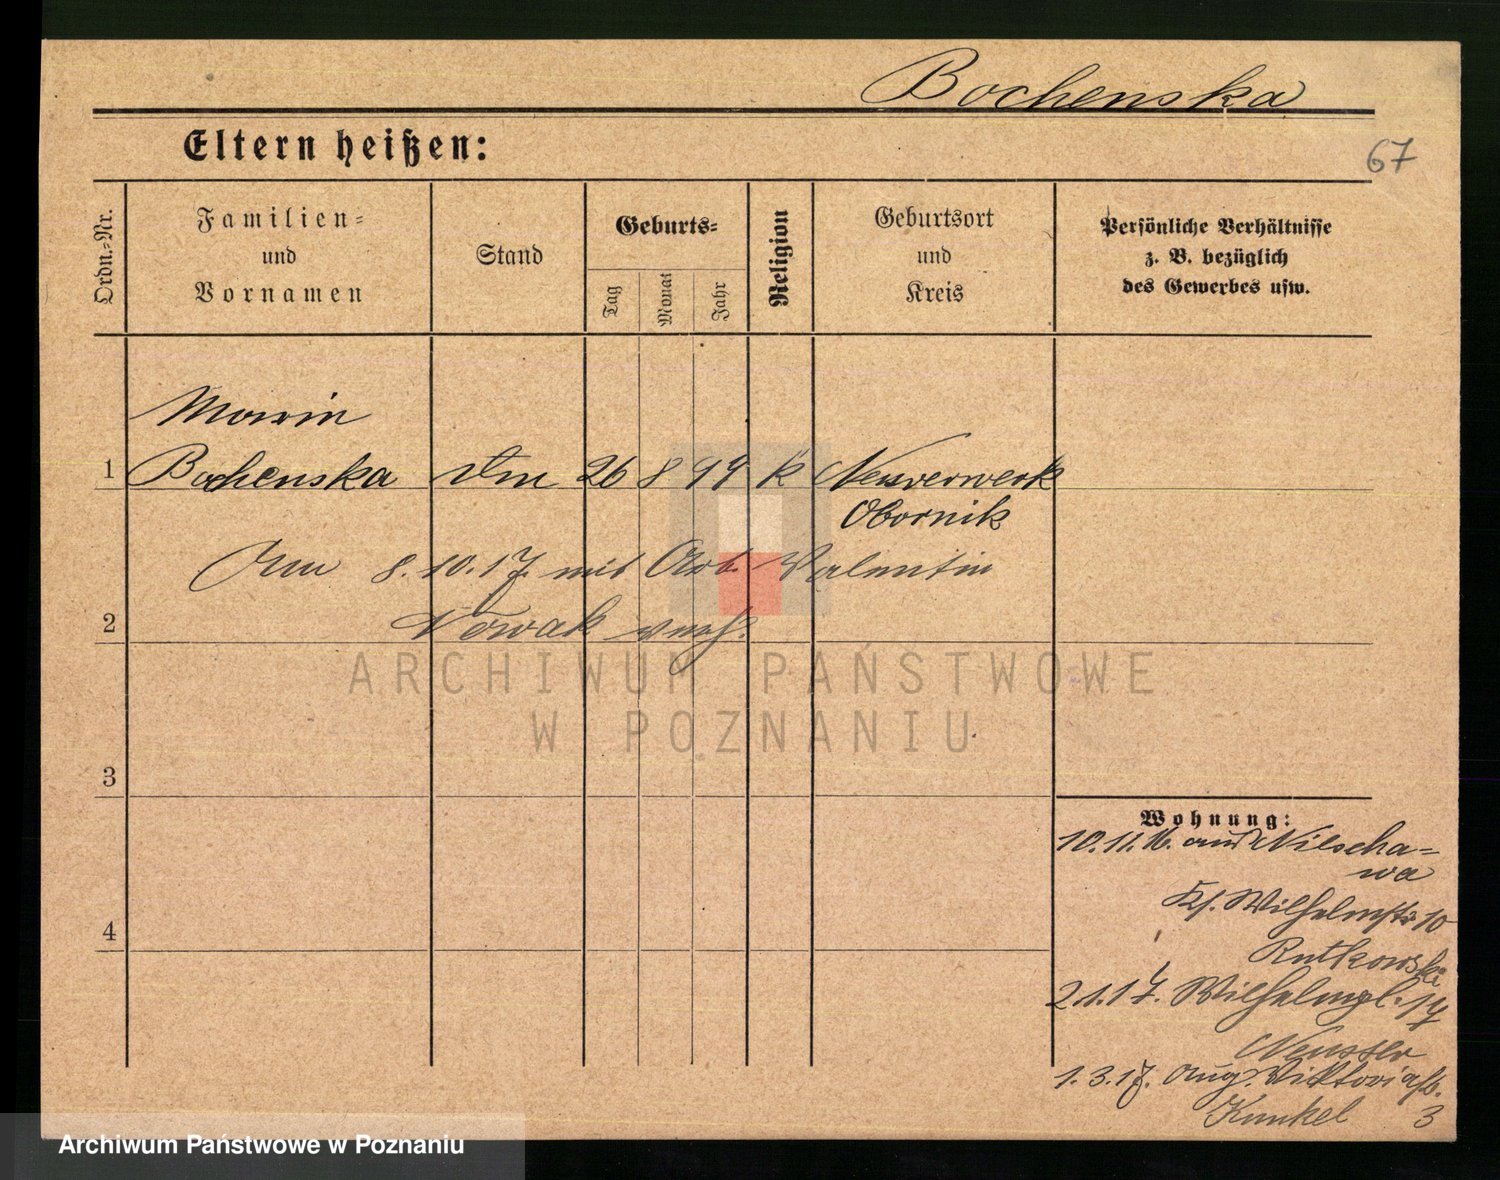 Bochenska
67
Eltern heißen:
Ordn.-Nr.
Familien-
und
Vornamen
Stand
Geburts-
Tag
Monat
Jahr
Religion
Geburtsort
und
Kreis
Persönliche Verhältnisse
z. B. bezüglich
des Gewerbes usw.
1
Bochenska 26 8 99 k Neuvorwerk
Obornik
8.10.17. mit Arb. Valentin
2
Nowak verh.
ARCHIWUM PAŃSTWOWE
W POZNANIU
3
Wohnung:
10.11.16. aus Wilscha-
wa
4
Kl. Wilhelmstr. 10
Rutkowski
2.1.17. Wilhelmpl. 14
1.3.17. Aug. Viktoriastr.
Kunkel 3
Archiwum Państwowe w Poznaniu